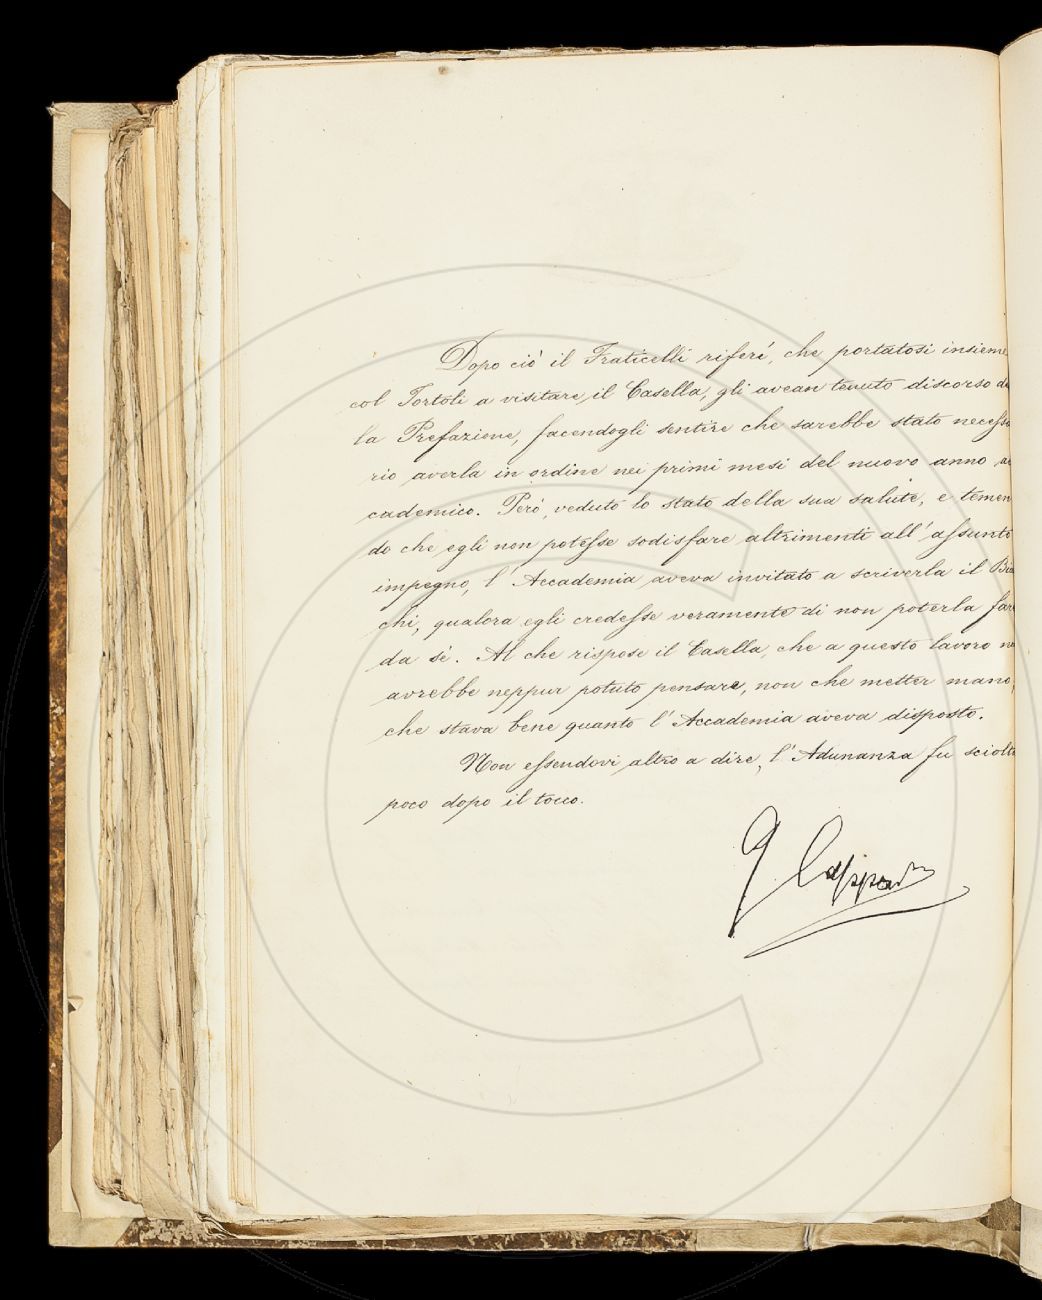 Dopo ciò il Fraticelli riferì, che portatosi insieme
col Tortoli a visitare il Casella, gli avean tenuto discorso del
la Prefazione, facendogli sentire che sarebbe stato necessa
rio averla in ordine nei primi mesi del nuovo anno ac
cademico. Però, veduto lo stato della sua salute, e temen
do che egli non potesse sodisfare altrimenti all'assunto
impegno, l'Accademia aveva invitato a scriverla il Bia
chi, qualora egli credesse veramente di non poterla fare
da sè. Al che rispose il Casella, che a questo lavoro non
avrebbe neppur potuto pensare, non che metter mano;
che stava bene quanto l'Accademia aveva disposto.
Non essendovi altro a dire, l'Adunanza fu sciolta
poco dopo il tocco.
G Capponi